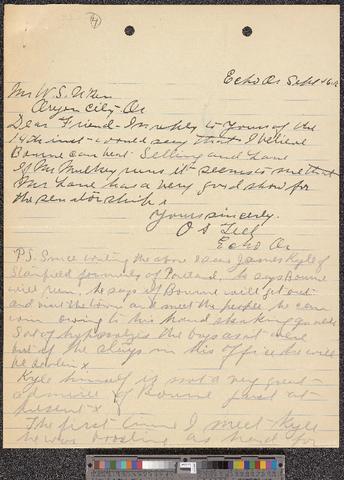 4
Echo Or Sept 16
Mr W.S. U'Ren
Oregon City Or
Dear Friend - In reply to yours of the
14th inst - would say that I believe
Bourne can beat Selling and Lane
If Mr Mulkey runs it seems to me that
Mr Lane has a very good show for
the senatorship.
Yours sincerely.
O A Teel
Echo Or
P.S. Since writing the above I saw James Kyle of
Stanfield formerly of Portland. he says Bourne
will run. he says if Bourne will get out
and visit the towns and meet the people he can
win owing to his hand shaking
Sort of hypnotize the boys as it were
but if he stays in his office he will
be beaten x
Kyle himself is not a very great
admirer of Bourne just at
present x
The first time I meet Kyle
he was boosting as hard for